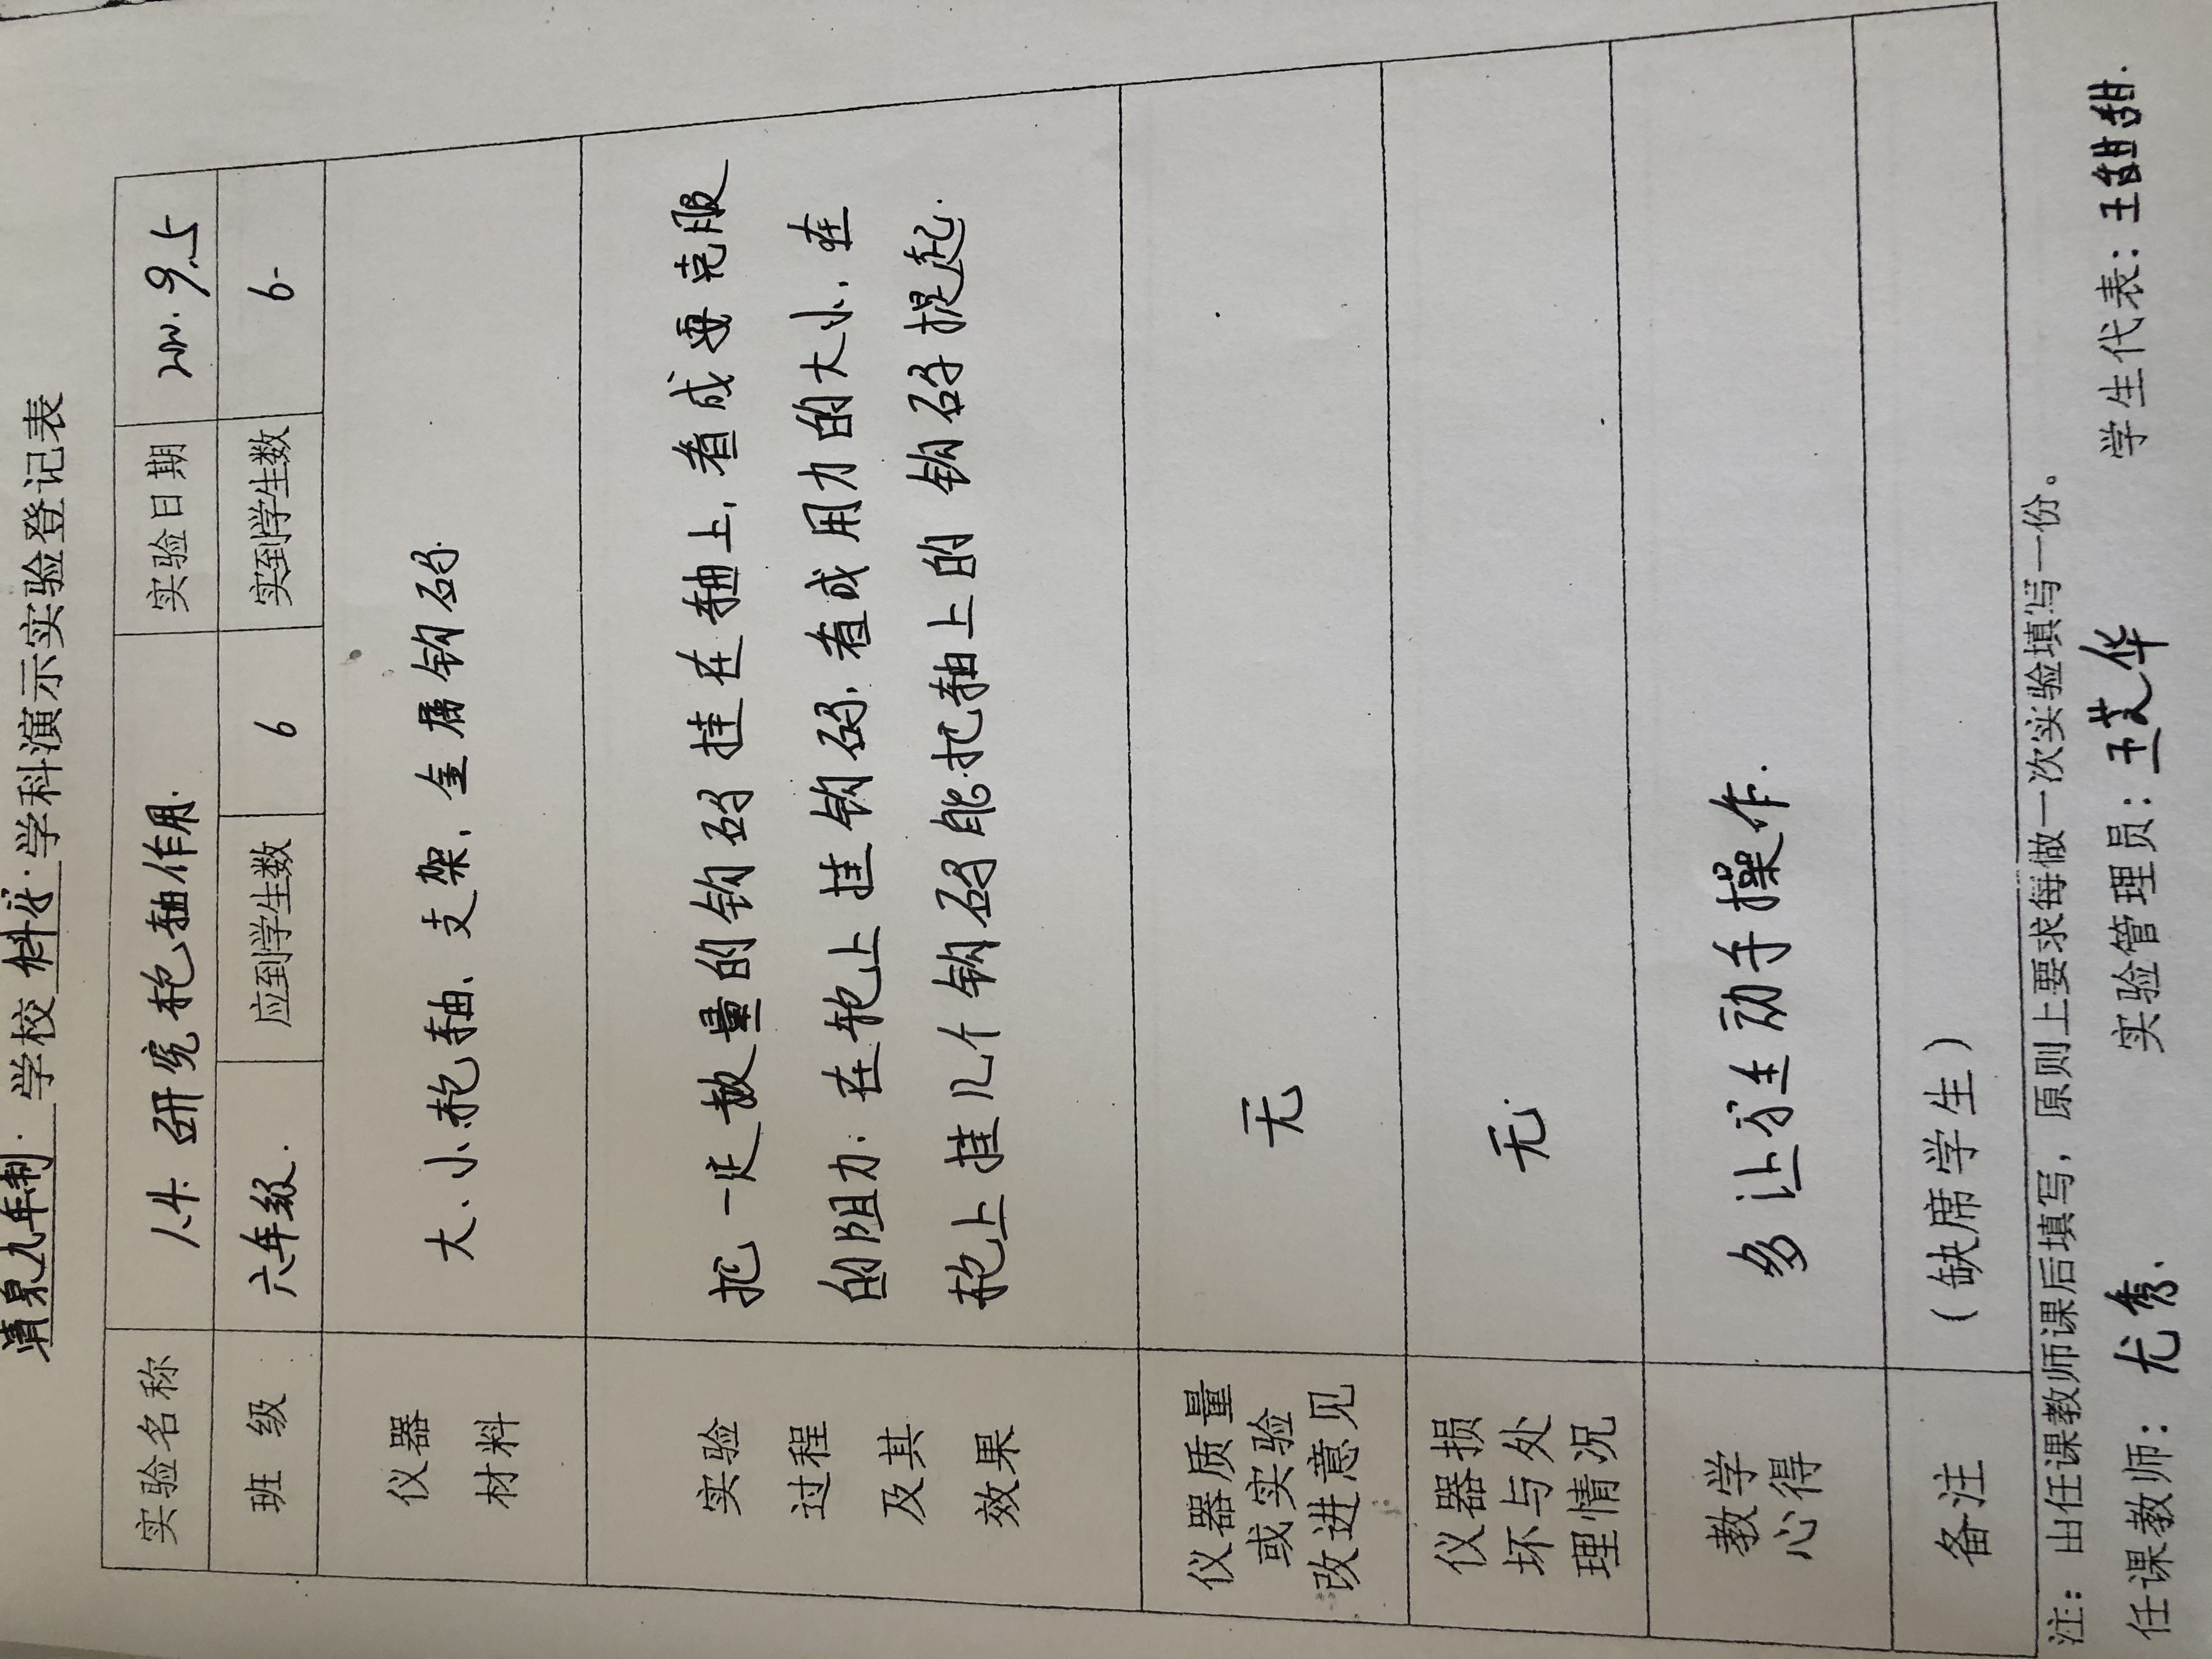 清泉九年制 学校 科学 学科演示实验登记表
实验名称 1.4 研究轮轴作用. 实验日期 2020.9.5
班 级 六年级. 应到学生数 6 实到学生数 6
仪器材料 大、小轮轴、支架, 金属钩码.
实验过程及其效果 把一定数量的钩码挂在轴上, 看成要克服
的阻力; 在轮上挂钩码, 看成用力的大小, 在
轮上挂几个钩码能把轴上的钩码提起.
仪器质量或实验改进意见 无
仪器损坏与处理情况 无.
教学心得 多让学生动手操作.
备注 (缺席学生)
注：由任课教师课后填写，原则上要求每做一次实验填写一份。
任课教师：尤秀. 实验管理员：王艾华 学生代表：王甜甜.